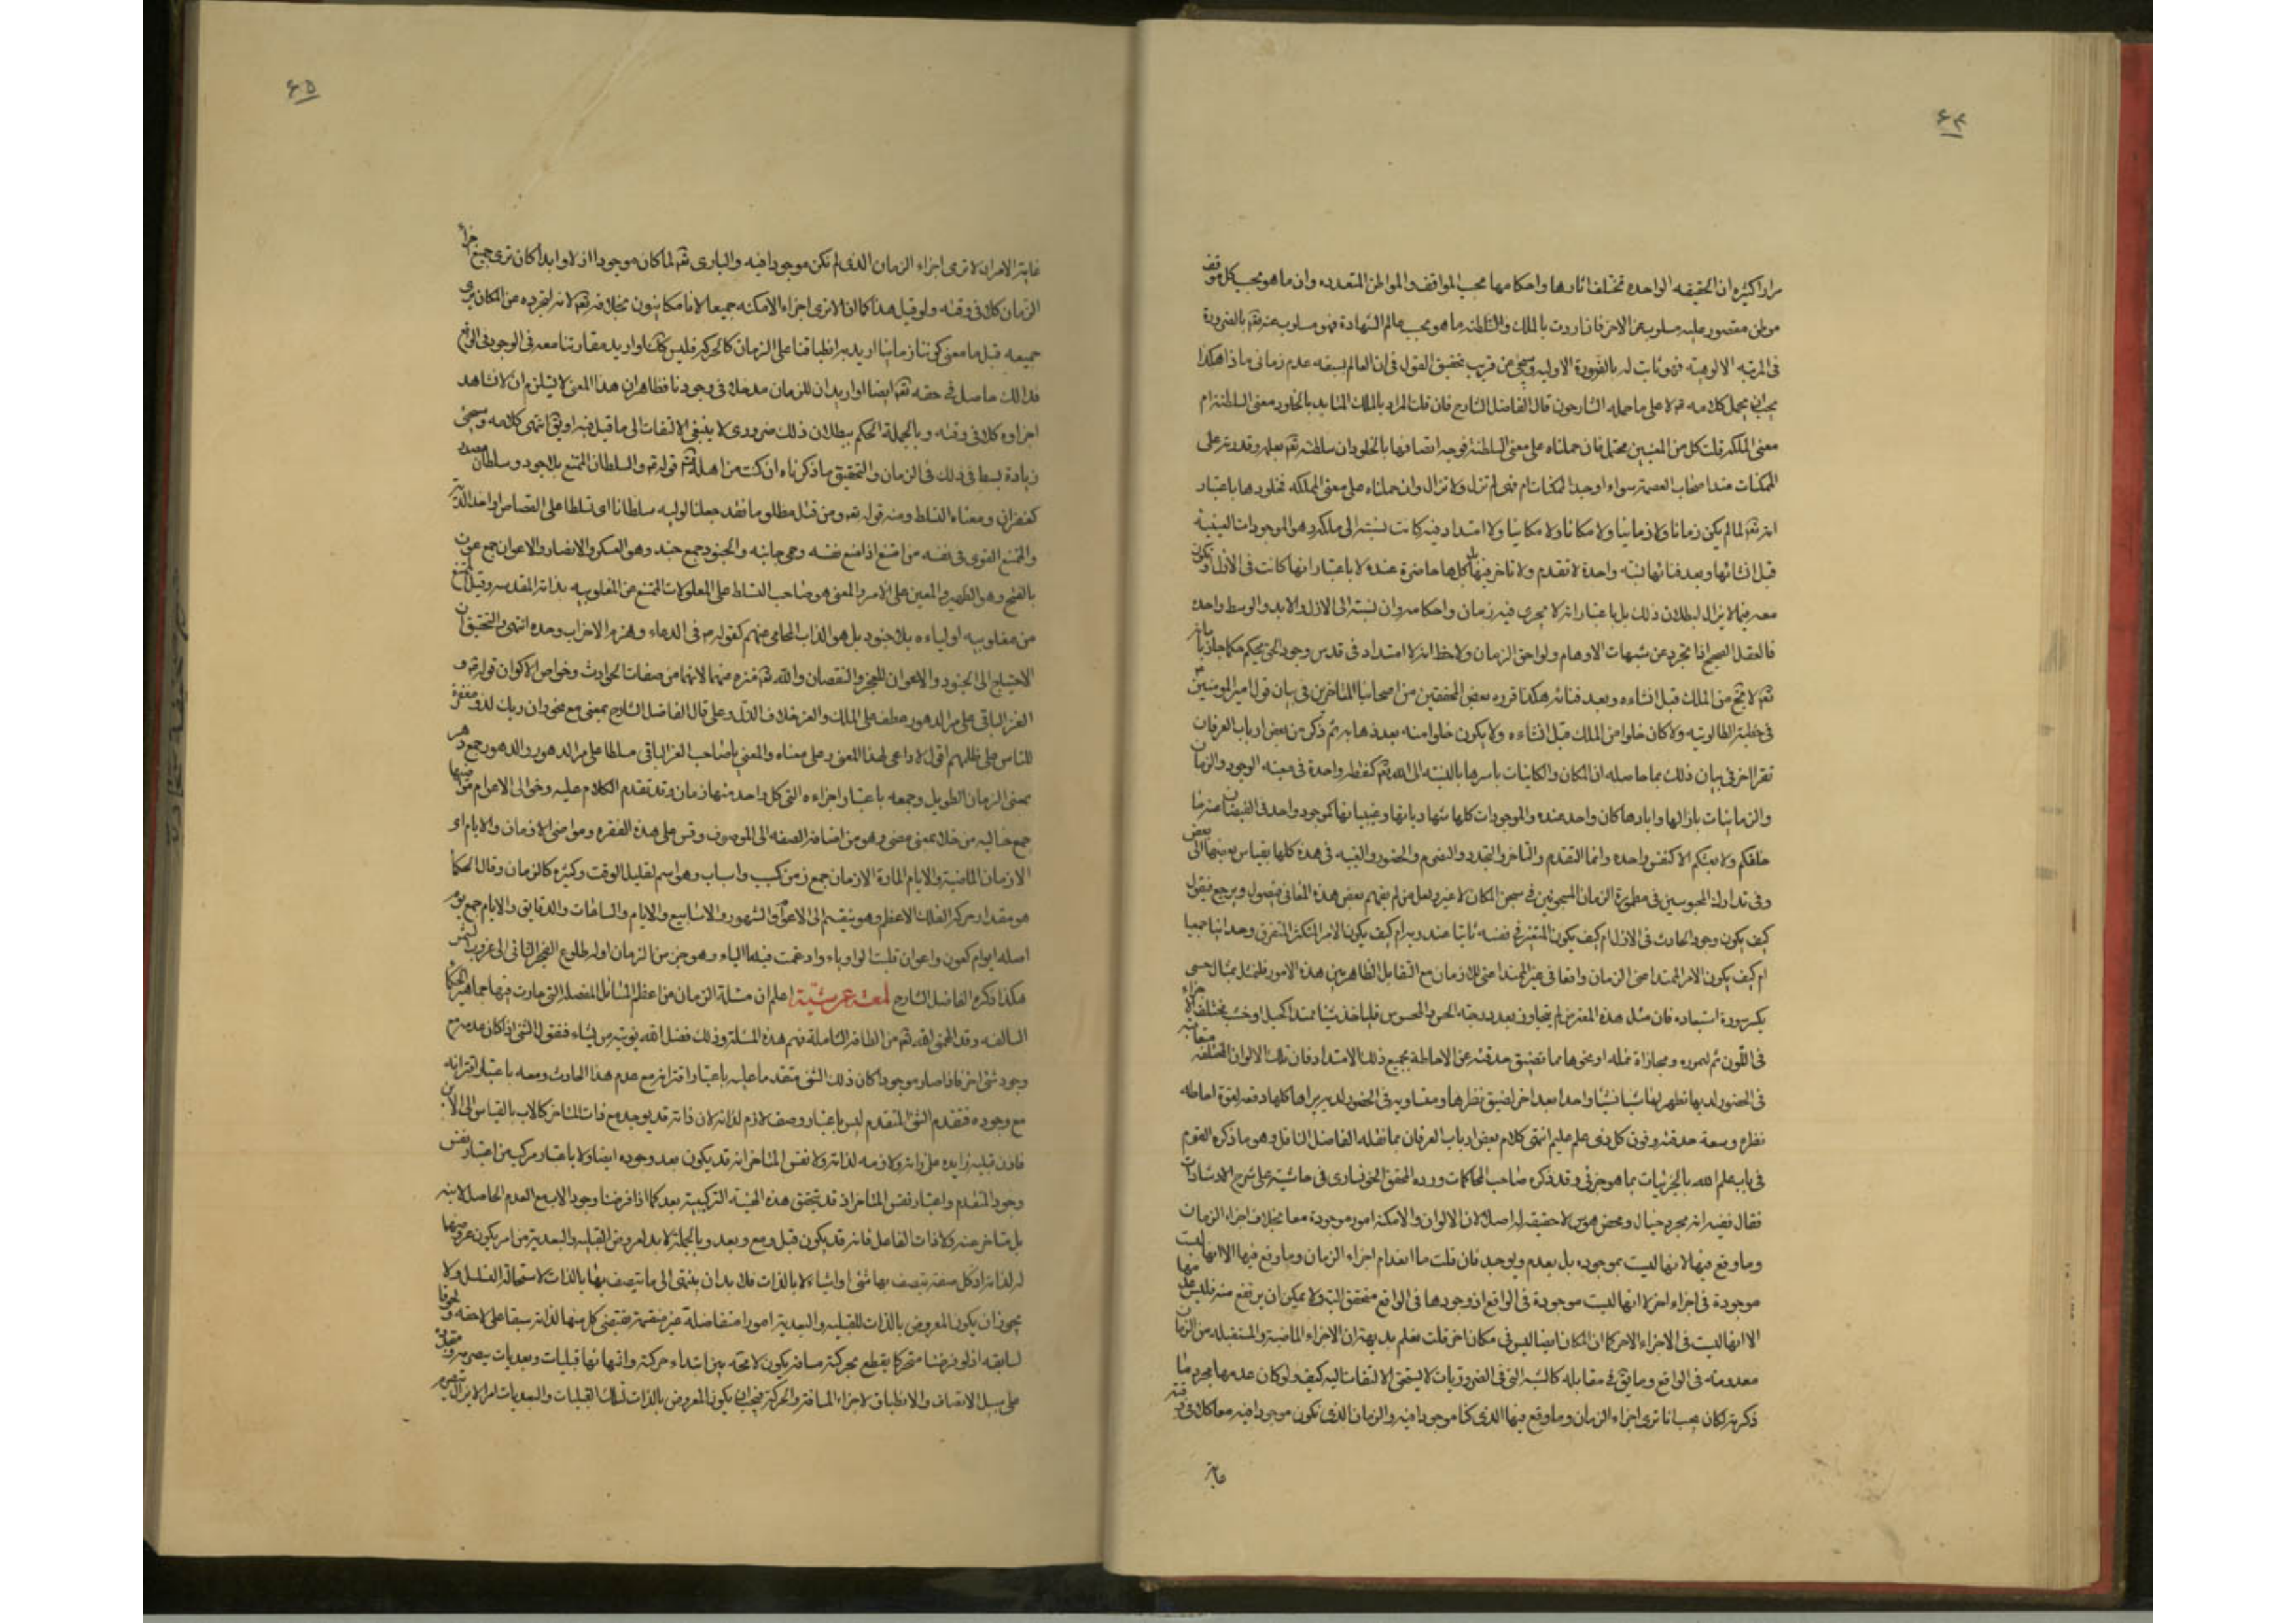 ۶۴
مرارا كثيرة ان الحقيقه الواحده تختلف اثارها واحكامها بحسب المواقف والمواطن المتعدده وان ما هو بحسب كل موقف
موطن مقصور عليه مسلوب عن الاخر فان اردت بالملك والسلطنه ما هو بحسب عالم الشهادة فهو مسلوب عنه تعم بالضرورة
فى المرتبه الالوهية فهو ثابت له بالضرورة الاوليه وسيجئ عن قريب تحقيق القول فى ان العالم يسبقه عدم زمانى ماذا هكذا
يجب ان يحمل كلامه لا على ما حمله الشارحون قال الفاضل الشارح فان قلت المراد بالملك المتابد بالخلود معنى السلطنة ام
معنى الملكه قلت كل من المعنيين محتمل فان حملناه على معنى السلطنة فوجه اتصافها بالخلود ان سلطنته تعم بعلمه وقدرته على
الممكنات عند اصحاب العصمة سواء اوجد الممكنات ام فهى لم تزل ولا تزال وان حملناه على معنى المملكه فخلودها باعتبار
انه تعم لما لم يكن زمانا ولا زمانيا ولا مكانا ولا مكانيا ولا امتداد فيه كانت نسبته الى ملكه وهو الموجودات العينية
قبل انشائها وبعد فنائها نسبته واحدة لا تقدم ولا تاخر فيها بل كلها حاضرة عنده لا باعتبار انها كانت فى الازل او تكون
معه فيما لا يزال لبطلان ذلك بل باعتبار انه لا يجرى فيه زمان واحكامه وان نسبته الى الازل والابد والوسط واحده
فالعقل الصحيح اذا تجرد عن شبهات الاوهام ولواحق الزمان ولاحظ انه لا امتداد فى قدس وجود الحق يحكم حكما جازما بانه
تعم لا يخ من الملك قبل انشاءه وبعد فنائه هكذا قرره بعض المحققين من اصحابنا المتاخرين فى بيان قول امير المومنين
فى خطبته الطالوتيه ولا كان خلوا من الملك قبل انشاءه ولا يكون خلوا منه بعد ذهابه ثم ذكر من بعض ارباب العرفان
تقرا اخر فى بيان ذلك بما حاصله ان المكان والكاينات باسرها بالنسبة الى الله تعم كنقطة واحدة فى معيته الوجود والزمان
والزمانيات بازالها وابادها كان واحد عنده والموجودات كلها شهادياتها وغيبياتها كموجود واحد فى الفيضان عنه ما
خلقكم ولا بعثكم الا كنفس واحده وانما التقدم والتاخر والتجدد والتصرم والحضور والغيبه فى هذه كلها بقياس بعضها الى بعض
وفى تدارك المحبوسين فى مطمورة الزمان المسجونين فى سجن المكان لا غير ولعل من لم يفهم بعض هذه المعانى يصول ويرجع فيقول
كيف يكون وجود الحادث فى الازل ام كيف يكون المتغير فى نفسه ثابتا عند ربه ام كيف يكون الامر المتكثر المتفرق وحدانيا جميعا
ام كيف يكون الامر الممتد اعنى الزمان واقعا فى غير الممتد اعنى اللازمان مع التقابل الظاهر بين هذه الامور فلنمثل بمثال حسى
يكسر سورة استبعاده فان مثل هذه المعترض لم يتجاوز بعد درجته الحس والمحسوس فلياخذ شيئا ممتدا كحبل او خشب مختلف الاجزاء
فى اللون ثم ليمرره فى محاذاة نمله او نحوها مما تضيق حدقته عن الاحاطة بجميع ذلك الامتداد فان تلك الالوان المختلفه متعاقبه
فى الحضور لديها تظهر لها شيئا فشيئا واحدا بعد اخر لضيق نظرها ومتساويه فى الحضور لديه يراها كلها دفعه لقوة احاطه
نظره وسعة حدقته وفوق كل ذى علم عليم انتهى كلام بعض ارباب العرفان بما نقله الفاضل الناقل وهو ما ذكره القوم
فى باب علم الله بالجزئيات بما هو جزئى وقد ذكره صاحب المحاكمات ورده المحقق الخونسارى فى حاشيته على شرح الاشارات
فقال فيه انه مجرد خيال ومحض هوس لا حقيقه له اصلا لان الالوان والامكنه امور موجودة معا بخلاف اجزاء الزمان
وما وقع فيها لانها ليست بموجوده بل يعدم ويوجد فان قلت ما انعدام اجزاء الزمان وما وقع فيها الا انها ليست
موجودة فى اجزاء اخر لا انها ليست موجودة فى الواقع اذ وجودها فى الواقع متحقق البته ولا يمكن ان يرتفع منه فليس عدمها
الا انها ليست فى الاجزاء الاخر كما ان المكان ايضا ليس فى مكان اخر قلت نعلم بديهة ان الاجزاء الماضية والمستقبله من الزمان
معدومه فى الواقع وما يق فى مقابله كالشبه التى فى الضروريات لا يستحق الالتفات اليه كيف ولو كان عدمها مجرد ما
ذكرته لكان يجب انا نرى اجزاء الزمان وما وقع فيها الذى كنا موجودا فيه والزمان الذى نكون موجودا فيه معا كلا فى وقته
غاية
۶۵
غاية الامر ان لا نرى اجزاء الزمان الذى لم نكن موجودا فيه والبارى تعم لما كان موجودا ازلا وابدا كان نرى جميع اجزاء
الزمان كلا فى وقته ولو قيل هذا كما انا لا نرى اجزاء الامكنه جميعا لانا مكانيون بخلافه تعم لانه لتجرده عن المكان يرى
جميعه قيل ما معنى كوننا زمانيا اريد به انطباقنا على الزمان كالحركه فليس كك ولو اريد مقارنتنا معه فى الوجود فى الواقع
فذلك حاصل فى حقه تعم ايضا ولو اريد ان للزمان مدخلا فى وجودنا فظاهر ان هذا المعنى لا يستلزم ان لا نشاهد
اجزاءه كلا فى وقته وبالجملة الحكم ببطلان ذلك ضرورى لا ينبغى الالتفات الى ما قيل فيه او يق انتهى كلامه وسيجئ
زيادة بسط فى ذلك فى الزمان والتحقيق ما ذكرناه ان كنت من اهله قوله والسلطان الممتنع بلا جنود وسلطان مصدر
كغفران ومعناه التسلط ومنه قوله تعم ومن قتل مظلوما فقد جعلنا لوليه سلطانا اى تسلطا على القصاص او اخذ الديه
والممتنع القوى فى نفسه من امتنع اذا منع نفسه وحمى جانبه والجنود جمع جند وهو العسكر والانصار والاعوان جمع عون
بالفتح وهو الظهير والمعين على الامر والمعنى هو صاحب التسلط على المعلولات الممتنع عن المغلوبيه بذاته المقدسه وقيل الممتنع
من مغلوبيه اولياءه بلا جنود بل هو الذاب المحامى عنهم كقوله فى الدعاء وهزم الاحزاب وحده انتهى والتحقيق ان
الاحتياج الى الجنود والاعوان للعجز والنقصان والله تعم منزه عنهما لانهما من صفات الحوادث وخواص الاكوان قوله و
العز الباقى على مر الدهور عطف على الملك والعز خلاف الذل وعلى قال الفاضل الشارح بمعنى مع نحو وان ربك لذو مغفرة
للناس على ظلمهم اقول لا داعى لهذا المعنى وعلى معناه والمعنى يا صاحب العز الباقى مسلطا على مر الدهور والدهور جمع دهر
بمعنى الزمان الطويل وجمعه باعتبار اجزاءه التى كل واحد منها زمان وقد تقدم الكلام عليه وخوالى الاعوام مواضيها
جمع خاليه من خلا بمعنى مضى وهو من اضافة الصفه الى الموصوف وقس على هذه الفقره ومواضى الازمان والايام اى
الازمان الماضية والايام المارة الازمان جمع زمن كسبب واسباب وهو اسم لقليل الوقت وكثيره كالزمان وقال الحكما
هو مقدار حركة الفلك الاعظم وهو ينقسم الى الاعوام والشهور والاسابيع والايام والساعات والدقايق والايام جمع يوم
اصله ايوام كعون واعوان قلبت الواو ياء وادغمت فيها الياء وهو جزء من الزمان اوله طلوع الفجر الثانى الى غروب الشمس
هكذا ذكره الفاضل الشارح لمعة عرشيّة اعلم ان مسئلة الزمان من اعظم المسائل المعضله التى حارت فيها جماهير الحكما
السالفه وقد الهمنى الله تعم من الطافه الشاملة فهم هذه المسئلة وذلك فضل الله يوتيه من يشاء فنقول الشئ اذا كان عدمه مع
وجود شئ اخر فاذا صار موجودا كان ذلك الشئ متقدما عليه باعتبار اقترانه مع عدم هذا الحادث ومعه باعتبار اقترانه
مع وجوده فتقدم الشئ المتقدم ليس باعتبار وصف لازم لذاته لان ذاته قد يوجد مع ذات المتاخر كالاب بالقياس الى الابن
فاذن قبليته زايده على ذاته ولازمه لذاته ولا نفس المتاخر انه قد يكون بعد وجوده ايضا ولا باعتبار مركب من اعتبار نفس
وجود المتقدم واعتبار نفس المتاخر اذ قد يتحقق هذه الهيئة التركيبيه بعد كما اذا فرضنا وجود الاب مع العدم الحاصل لابنه
بل متاخر عنه ولا ذات الفاعل فانه قد يكون قبل ومع وبعد وبالجملة لا بد لعروض القبليه والبعدية من امر يكون عروضها
له لذاته اذ كل صفة يتصف بها شئ او اشياء لا بالذات فلا بد ان ينتهى الى ما يتصف بها بالذات لاستحالة التسلسل ولا
يجوز ان يكون المعروض بالذات للقبليه والبعدية امورا متفاضلة غير منقسمة تقتضى كل منها لذاته سبقا على لاحقه ولحوقا
لسابقه اذ لو فرضنا متحركا يقطع بحركته مسافه يكون لا محه بين ابتداء حركته وانتهائها قبليات وبعديات متصرمه
على سبيل الاتصاف والانطباق لاجزاء المسافة والحركة فيجب ان يكون المعروض بالذات لتلك القبليات والبعديات امرا لا يزال يتصرم